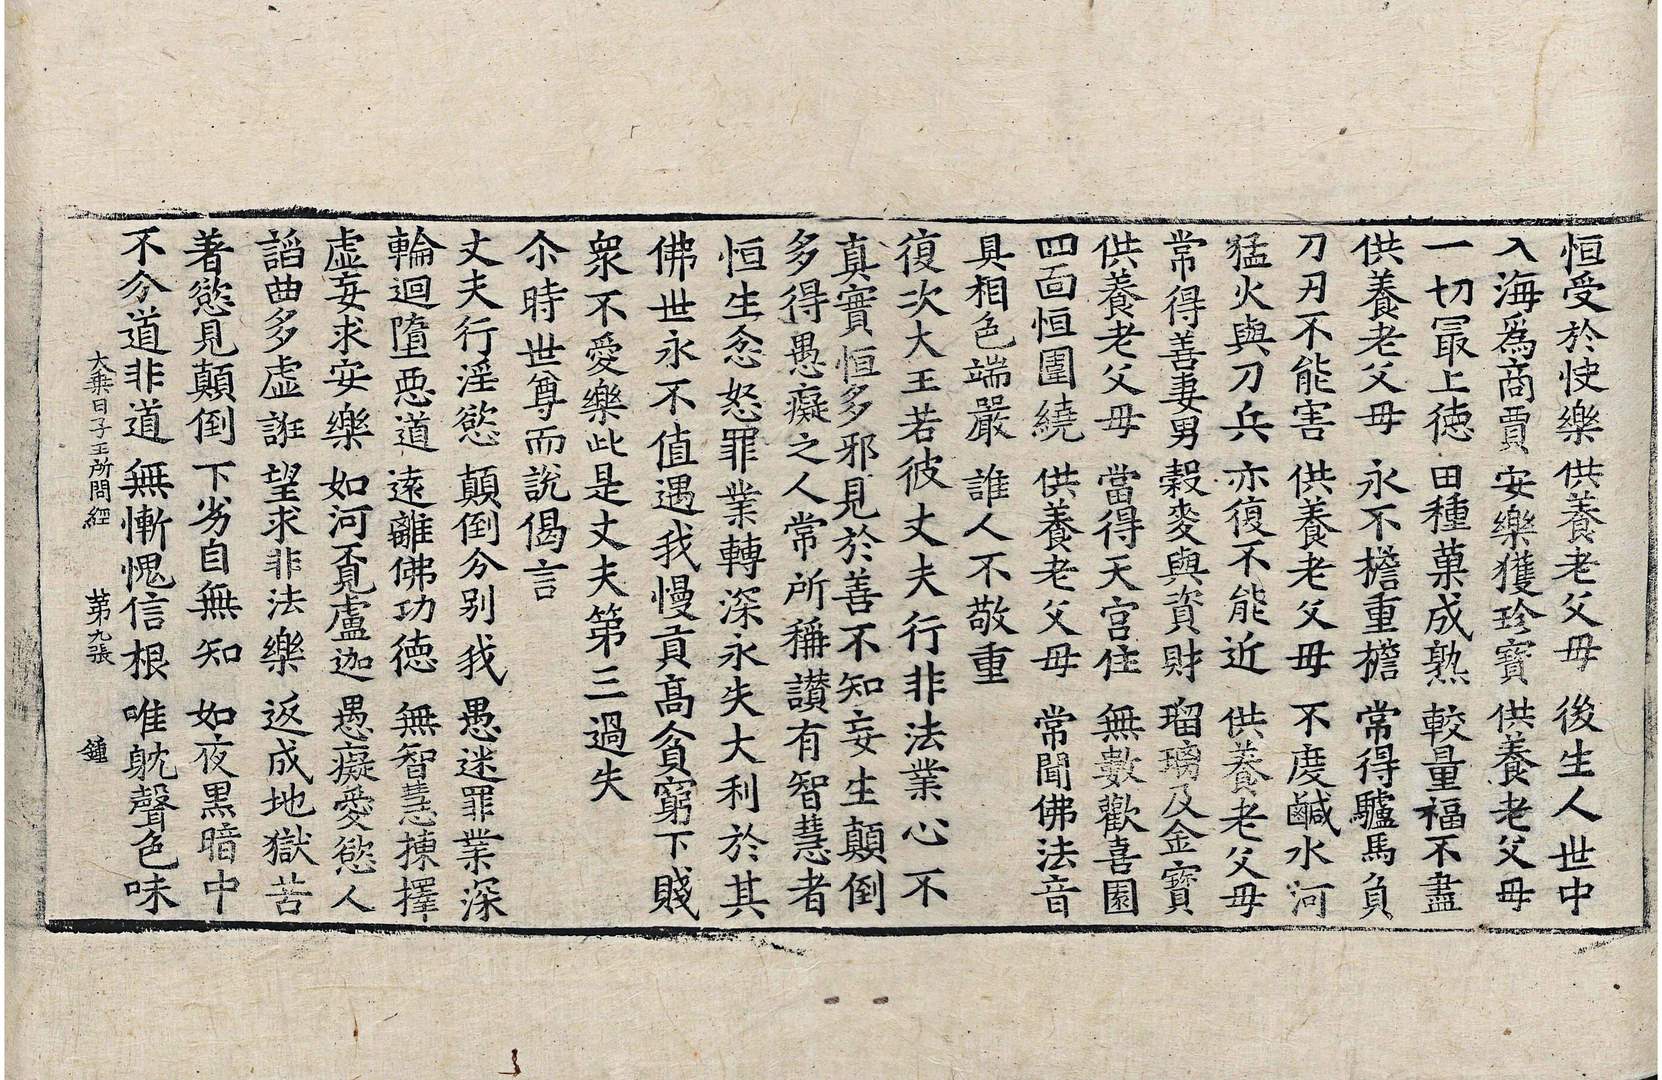 恒受於快樂 供養老父母 後生人世中
入海爲商賈 安樂獲珍寶 供養老父母
一切冣上徳 田種菓成熟 較量福不盡
供養老父母 永不檐重檐 常得驢馬負
刀刃不能害 供養老父母 不度鹹水河
猛火與刀兵 亦復不能近 供養老父母
常得善妻男 穀麥與資財 瑠璃及金寶
供養老父母 當得天宮住 無數歡喜園
四面恒圍繞 供養老父母 常聞佛法音
具相色端嚴 誰人不敬重
復次大王若彼丈夫行非法業心不
真實恒多邪見於善不知妄生顛倒
多得愚癡之人常所稱讃有智慧者
恒生忿怒罪業轉深永失大利於其
佛世永不值遇我慢貢高貧窮下賤
衆不愛樂此是丈夫第三過失
尒時世尊而說偈言
丈夫行淫慾 顛倒分別我 愚迷罪業深
輪迴墮惡道 遠離佛功徳 無智慧揀擇
虛妄求安樂 如河覔盧迦 愚癡愛慾人
謟曲多虛誑 望求非法樂 返成地獄苦
著慾見顛倒 下劣自無知 如夜黒暗中
不分道非道 無慚愧信根 唯躭聲色味
大乗日子王所問經 苐九張 鍾